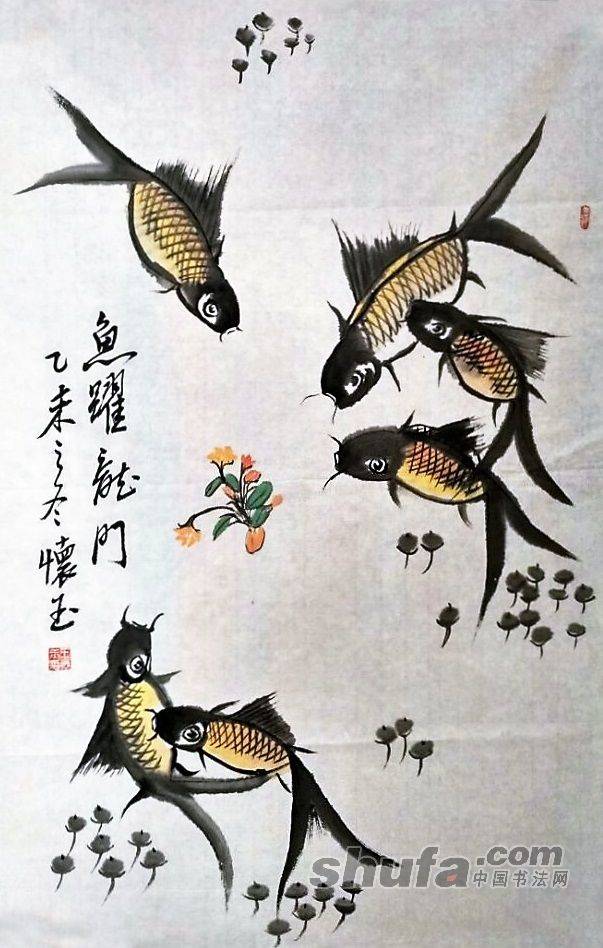 魚躍龍門
乙未之冬懷玉
shufa.com
中国书法网